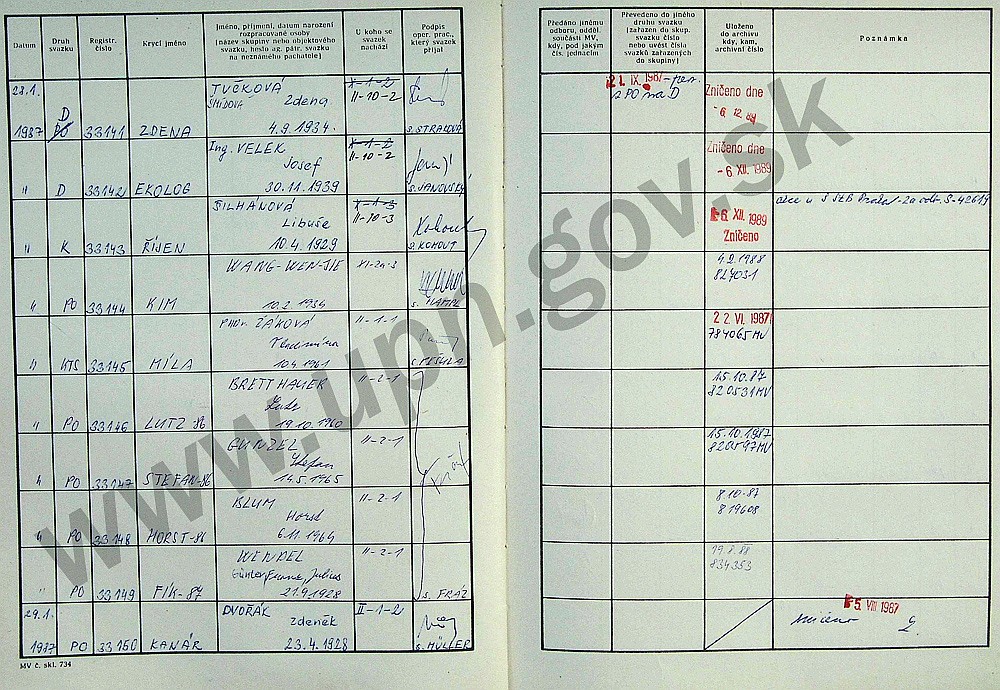 Datum
Druh svazku
Registr. číslo
Krycí jméno
Jméno, příjmení, datum narození
rozpracované osoby
(název skupiny nebo objektového
svazku, heslo ag. pátr. svazku
na neznámého pachatele)
U koho se
svazek
nachází
Podpis
oper. prac.,
který svazek
přijal
Předáno jinému
odboru, odděl.
součásti MV,
kdy, pod jakým
čís. jednacím
Převedeno do jiného
druhu svazku
(zařazen do skup.
svazku číslo
nebo uvést čísla
svazků zařazených
do skupiny)
Uloženo
do archivu
kdy, kam,
archivní číslo
Poznámka
28.1. TUČKOVÁ X-1-2
D ŠMÍDOVÁ Zdena II-10-2
1987 PO 33141 ZDENA 4.9.1934. s. STRAKOVÁ
21. IX. 1987
z PO na D
Zničeno dne
-6. 12. 89
Ing. VELEK X-1-2
Josef II-10-2
" D 33142 EKOLOG 30.11.1939 s. JANOVSKÝ
Zničeno dne
-6. XII. 1989
ŠILHÁNOVÁ X-1-3
Libuše II-10-3
" K 33143 ŘÍJEN 10.4.1929 s. KOHOUT
-6. XII. 1989
Zničeno
WANG-WEN-JIE XI-2a-3
" PO 33144 KIM 10.2.1934 s. HAMPL
4.2.1988
827031
PhDr. ŽÁKOVÁ II-1-1
Vladimíra
" KTS 33145 MÍLA 10.4.1961
22. VI. 1987
784065 MV
BRETTHAUER II-2-1
Lutz
" PO 33146 LUTZ-86 19.10.1960
15.10.87
820531 MV
GUNZEL II-2-1
Stefan
" PO 33147 STEFAN-86 14.5.1965
15.10.1987
820597 MV
BLUM II-2-1
Horst
" PO 33148 HORST-86 6.11.1964
8.10.87
819608
WENDEL II-2-1
Günter Franz, Julius
" PO 33149 FÍK-87 21.9.1928 s. FRÁZ
19.8.88
834353
29.1. DVOŘÁK II-1-2
Zdeněk
1987 PO 33150 KANÁR 23.4.1928 s. MÜLLER
-5. VIII 1987
zničeno
MV č. skl. 734
www.upn.gov.sk